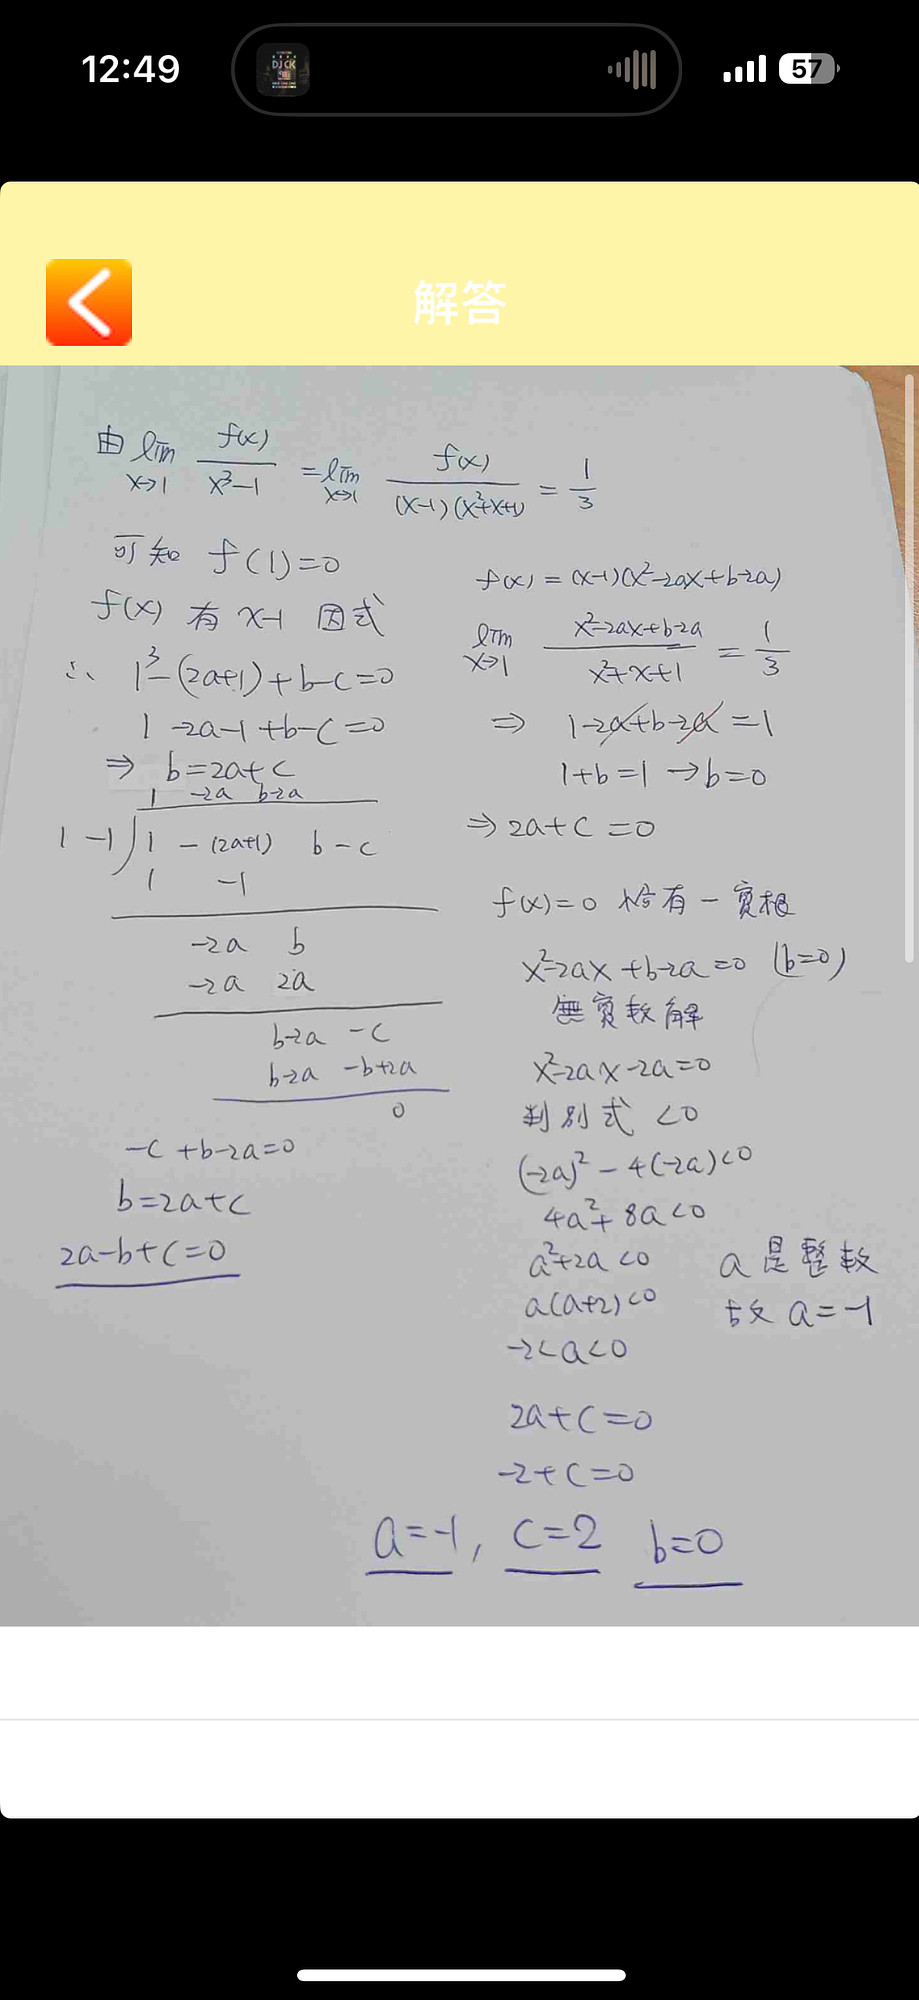 12:49
DJ CK
57
解答
由 lim x→1 f(x)/(x³-1) = lim x→1 f(x)/((x-1)(x²+x+1)) = 1/3
可知 f(1)=0
f(x) 有 x-1 因式
∴ 1³-(2a+1)+b-c=0
1-2a-1+b-c=0
⇒ b=2a+c
1 -2a b-2a
1 -1 ) 1 -(2a+1) b -c
1 -1
-2a b
-2a 2a
b-2a -c
b-2a -b+2a
0
-c+b-2a=0
b=2a+c
2a-b+c=0
f(x)=(x-1)(x²-2ax+b-2a)
lim x→1 (x²-2ax+b-2a)/(x²+x+1) = 1/3
⇒ 1-2a+b-2a=1
1+b=1→b=0
⇒2a+c=0
f(x)=0 恰有一實根
x²-2ax+b-2a=0 (b=0)
無實數解
x²-2ax-2a=0
判別式 <0
(-2a)²-4(-2a)<0
4a²+8a<0
a²+2a<0
a(a+2)<0
-2<a<0
a 是整數
故 a=-1
2a+c=0
-2+c=0
a=-1, c=2 b=0